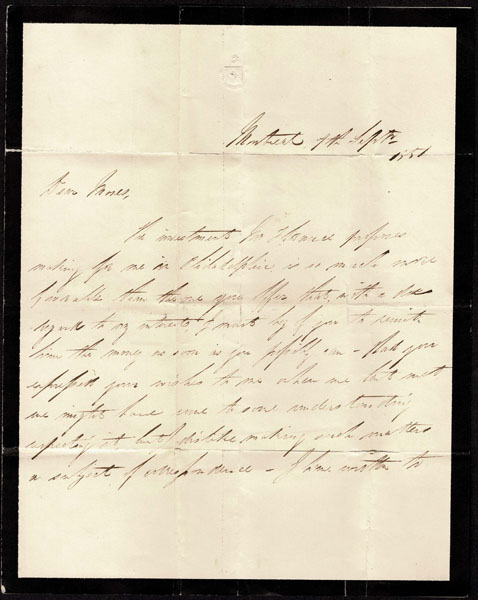 Montreal 9th Septr
1851
Dear James,
The investments Mr Florance proposes
making for me in Philadelphia is so much more
favorable than those you offer that, with a due
regard to my interests, I must beg of you to remit
him the money as soon as you possibly can - Had you
expressed your wishes to me when we last met
we might have come to some understanding
respecting it but I dislike making such matters
a subject of correspondence - I have written to